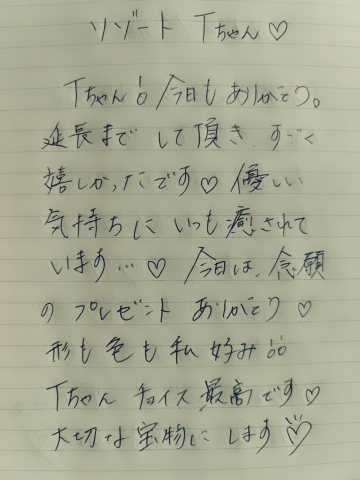 リゾート Tちゃん♡
Tちゃん!! 今日も ありがとう。
延長まで して頂き、すごく
嬉しかったです♡ 優しい
気持ちに いつも癒されて
います…♡ 今日は、念願
の プレゼント ありがとう♡
形も 色も 私 好み!!
Tちゃん チョイス 最高です♡
大切な宝物に します♡